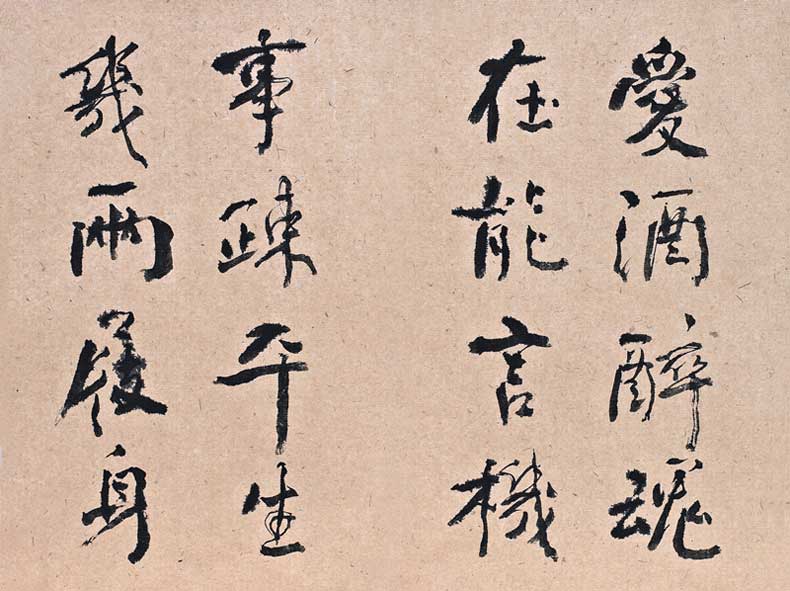 愛酒醉魂
在能言機
事疎平生
幾兩屐身